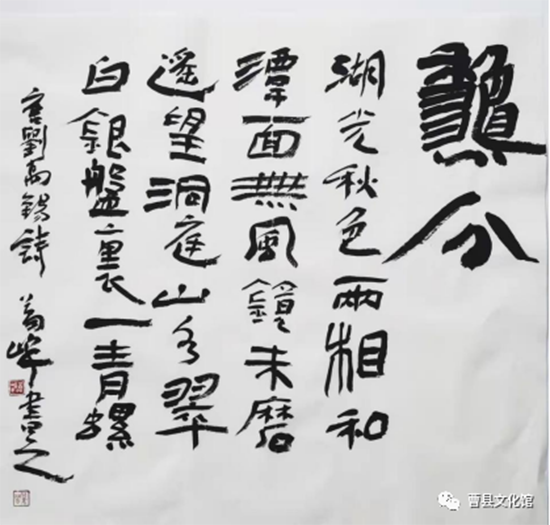 分
湖光秋色兩相和
潭面無風鏡未磨
遙望洞庭山水翠
白銀盤裏一青螺
唐劉禹錫詩 峰書之
曹县文化馆